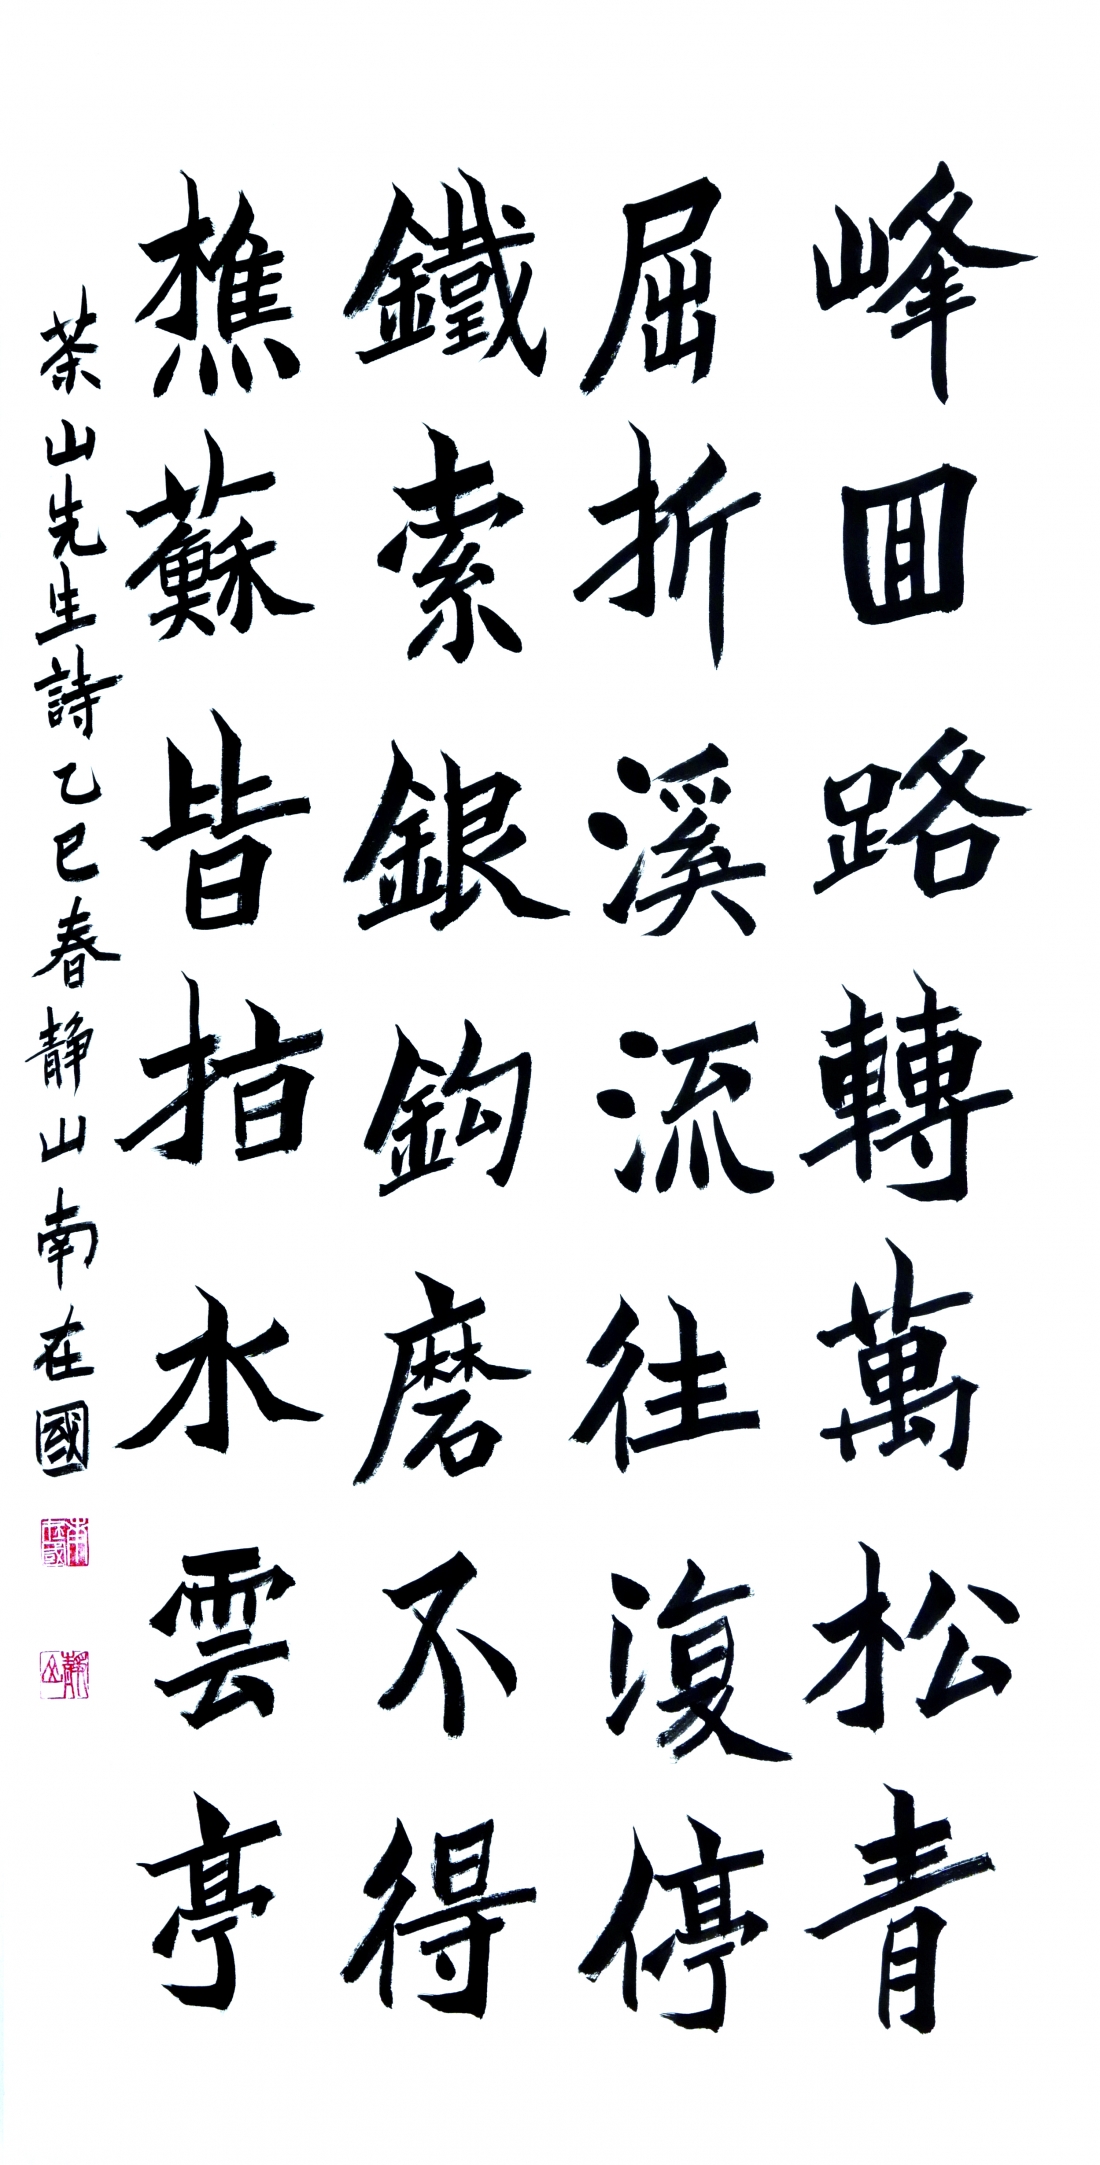 峰回路轉萬松青
屈折溪流往復停
鐵索銀鉤磨不得
樵蘇皆指水雲亭
茶山先生詩 乙巳春 靜山 南在國
南在國
靜山